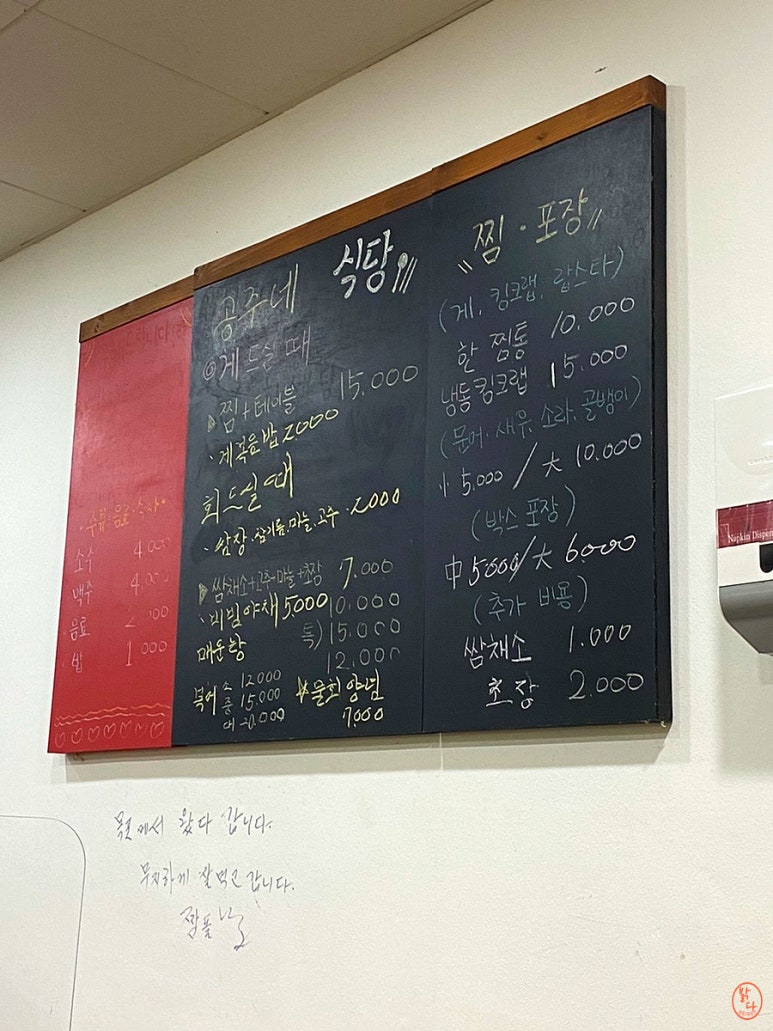 주류.음료.식사
소주 4.000
맥주 4.000
음료
밥 1.000
공주네 식당
◎게 드실 때
▷찜+테이블 15.000
·게볶음밥 2000
회드실때
·쌈장.참기름.마늘.고추· 2000
▷쌈채소+고추·마늘+초장 7.000
·비빔야채 5000
매운탕 10.000
특) 15.000
12.000
복어 소 12000
중 15.000
대 20.000
물회 양념
7.000
찜·포장
(게, 킹크랩, 랍스타)
한 찜통 10.000
냉동킹크랩 15.000
(문어.새우.소라.골뱅이)
小 5.000 / 大 10.000
(박스 포장)
中 5000/大 6.000
(추가 비용)
쌈채소 1.000
초장 2.000
왔다 갑니다.
무지하게 잘먹고 갑니다.
Napkin Dispen
밝다